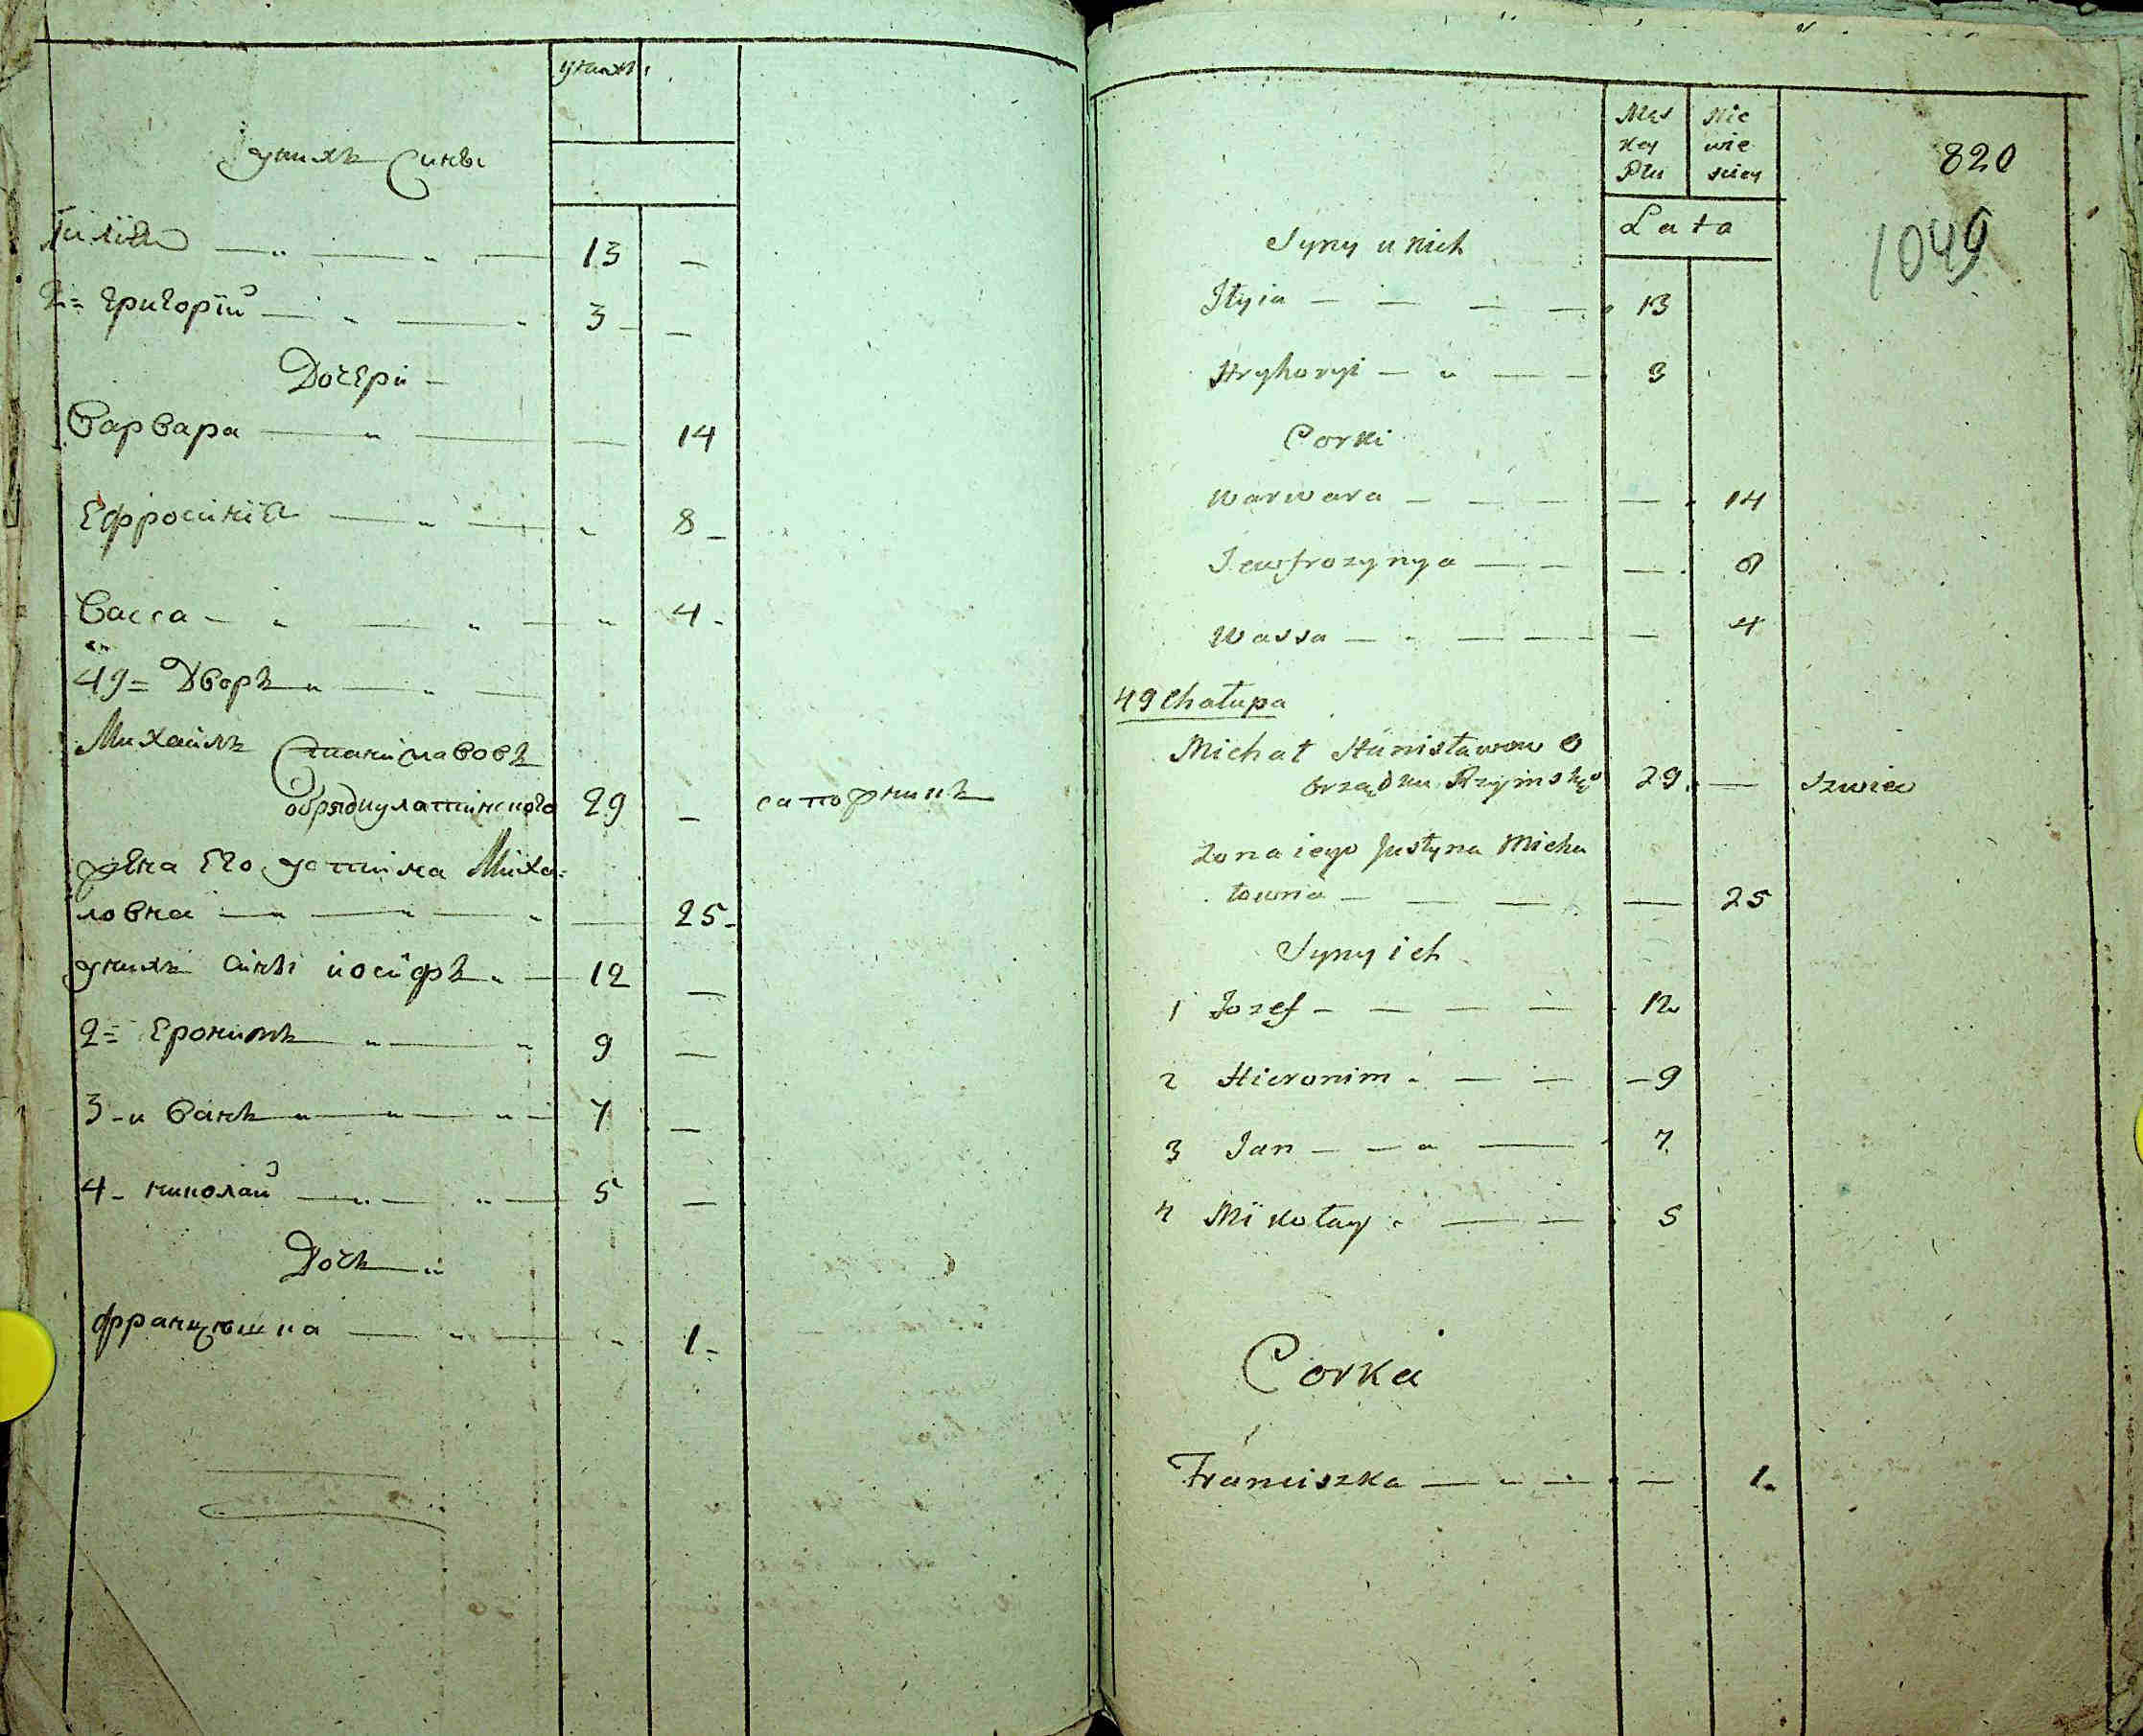 унихъ Сины
Iилiя — 13 —
2= григорiй — 3 —
Дочери —
Варвара — — 14
Ефросинiя — 8
Васса — 4
49= Дворъ
Михайлъ Станиславовъ
обрядиулатинского 29 — сапожникъ
жена Его устина Миха=
ловна — 25
унихъ сини иосифъ — 12 —
2= Еронимъ 9 —
3-иванъ 7 —
4- николай 5 —
Дочь
францышка — 1
Męs Nie
key wie
Płci sciey
820
Lata
1049
Syny u nich
Ilyia — 13
Hryhoryi — 3
Corki
Warwara — — 14
Jewfrozynya — — 8
Wassa — — 4
49 Chałupa
Michał Stanisławow O
brządku Rzymskgo 29. — Szwiec
Zona iego Justyna Micha
łowna — — 25
Syny ich
1 Jozef — 12
2 Hieronim — 9
3 Jan — 7
4 Mikołay — 5
Corka
Franciszka — — 1